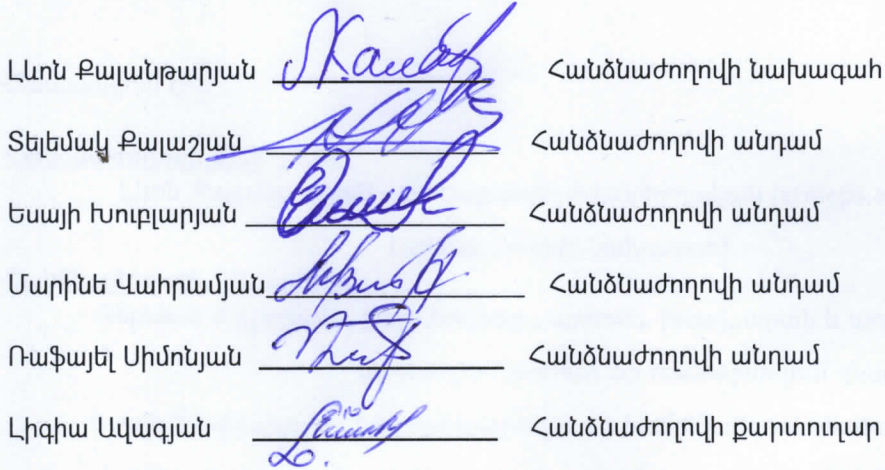 Լևոն Քալանթարյան Հանձնաժողովի նախագահ
Տելեմակ Քալաշյան Հանձնաժողովի անդամ
Եսայի Խուբլարյան Հանձնաժողովի անդամ
Մարինե Վահրամյան Հանձնաժողովի անդամ
Ռաֆայել Սիմոնյան Հանձնաժողովի անդամ
Լիգիա Ավագյան Հանձնաժողովի քարտուղար